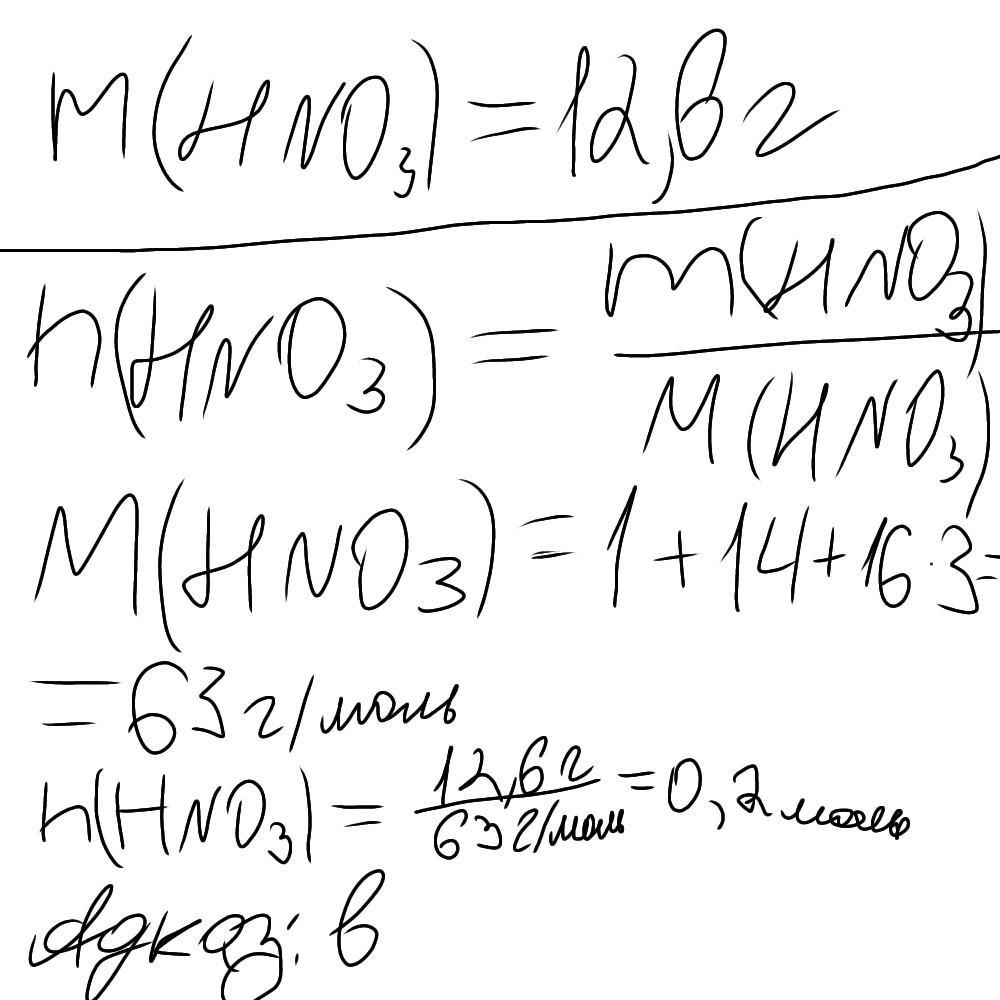 m(HNO₃) = 12,6 г
n(HNO₃) = m(HNO₃) / M(HNO₃)
M(HNO₃) = 1 + 14 + 16·3 =
= 63 г/моль
n(HNO₃) = 12,6 г / 63 г/моль = 0,2 моль
Адказ: в